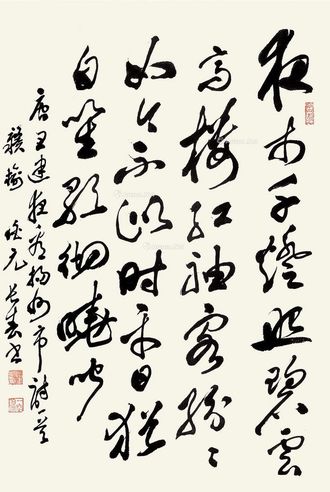 夜市千灯照碧云
高楼红袖客纷々
如今不似时平日
犹自笙歌彻晓闻
唐王建夜看扬州市诗一首